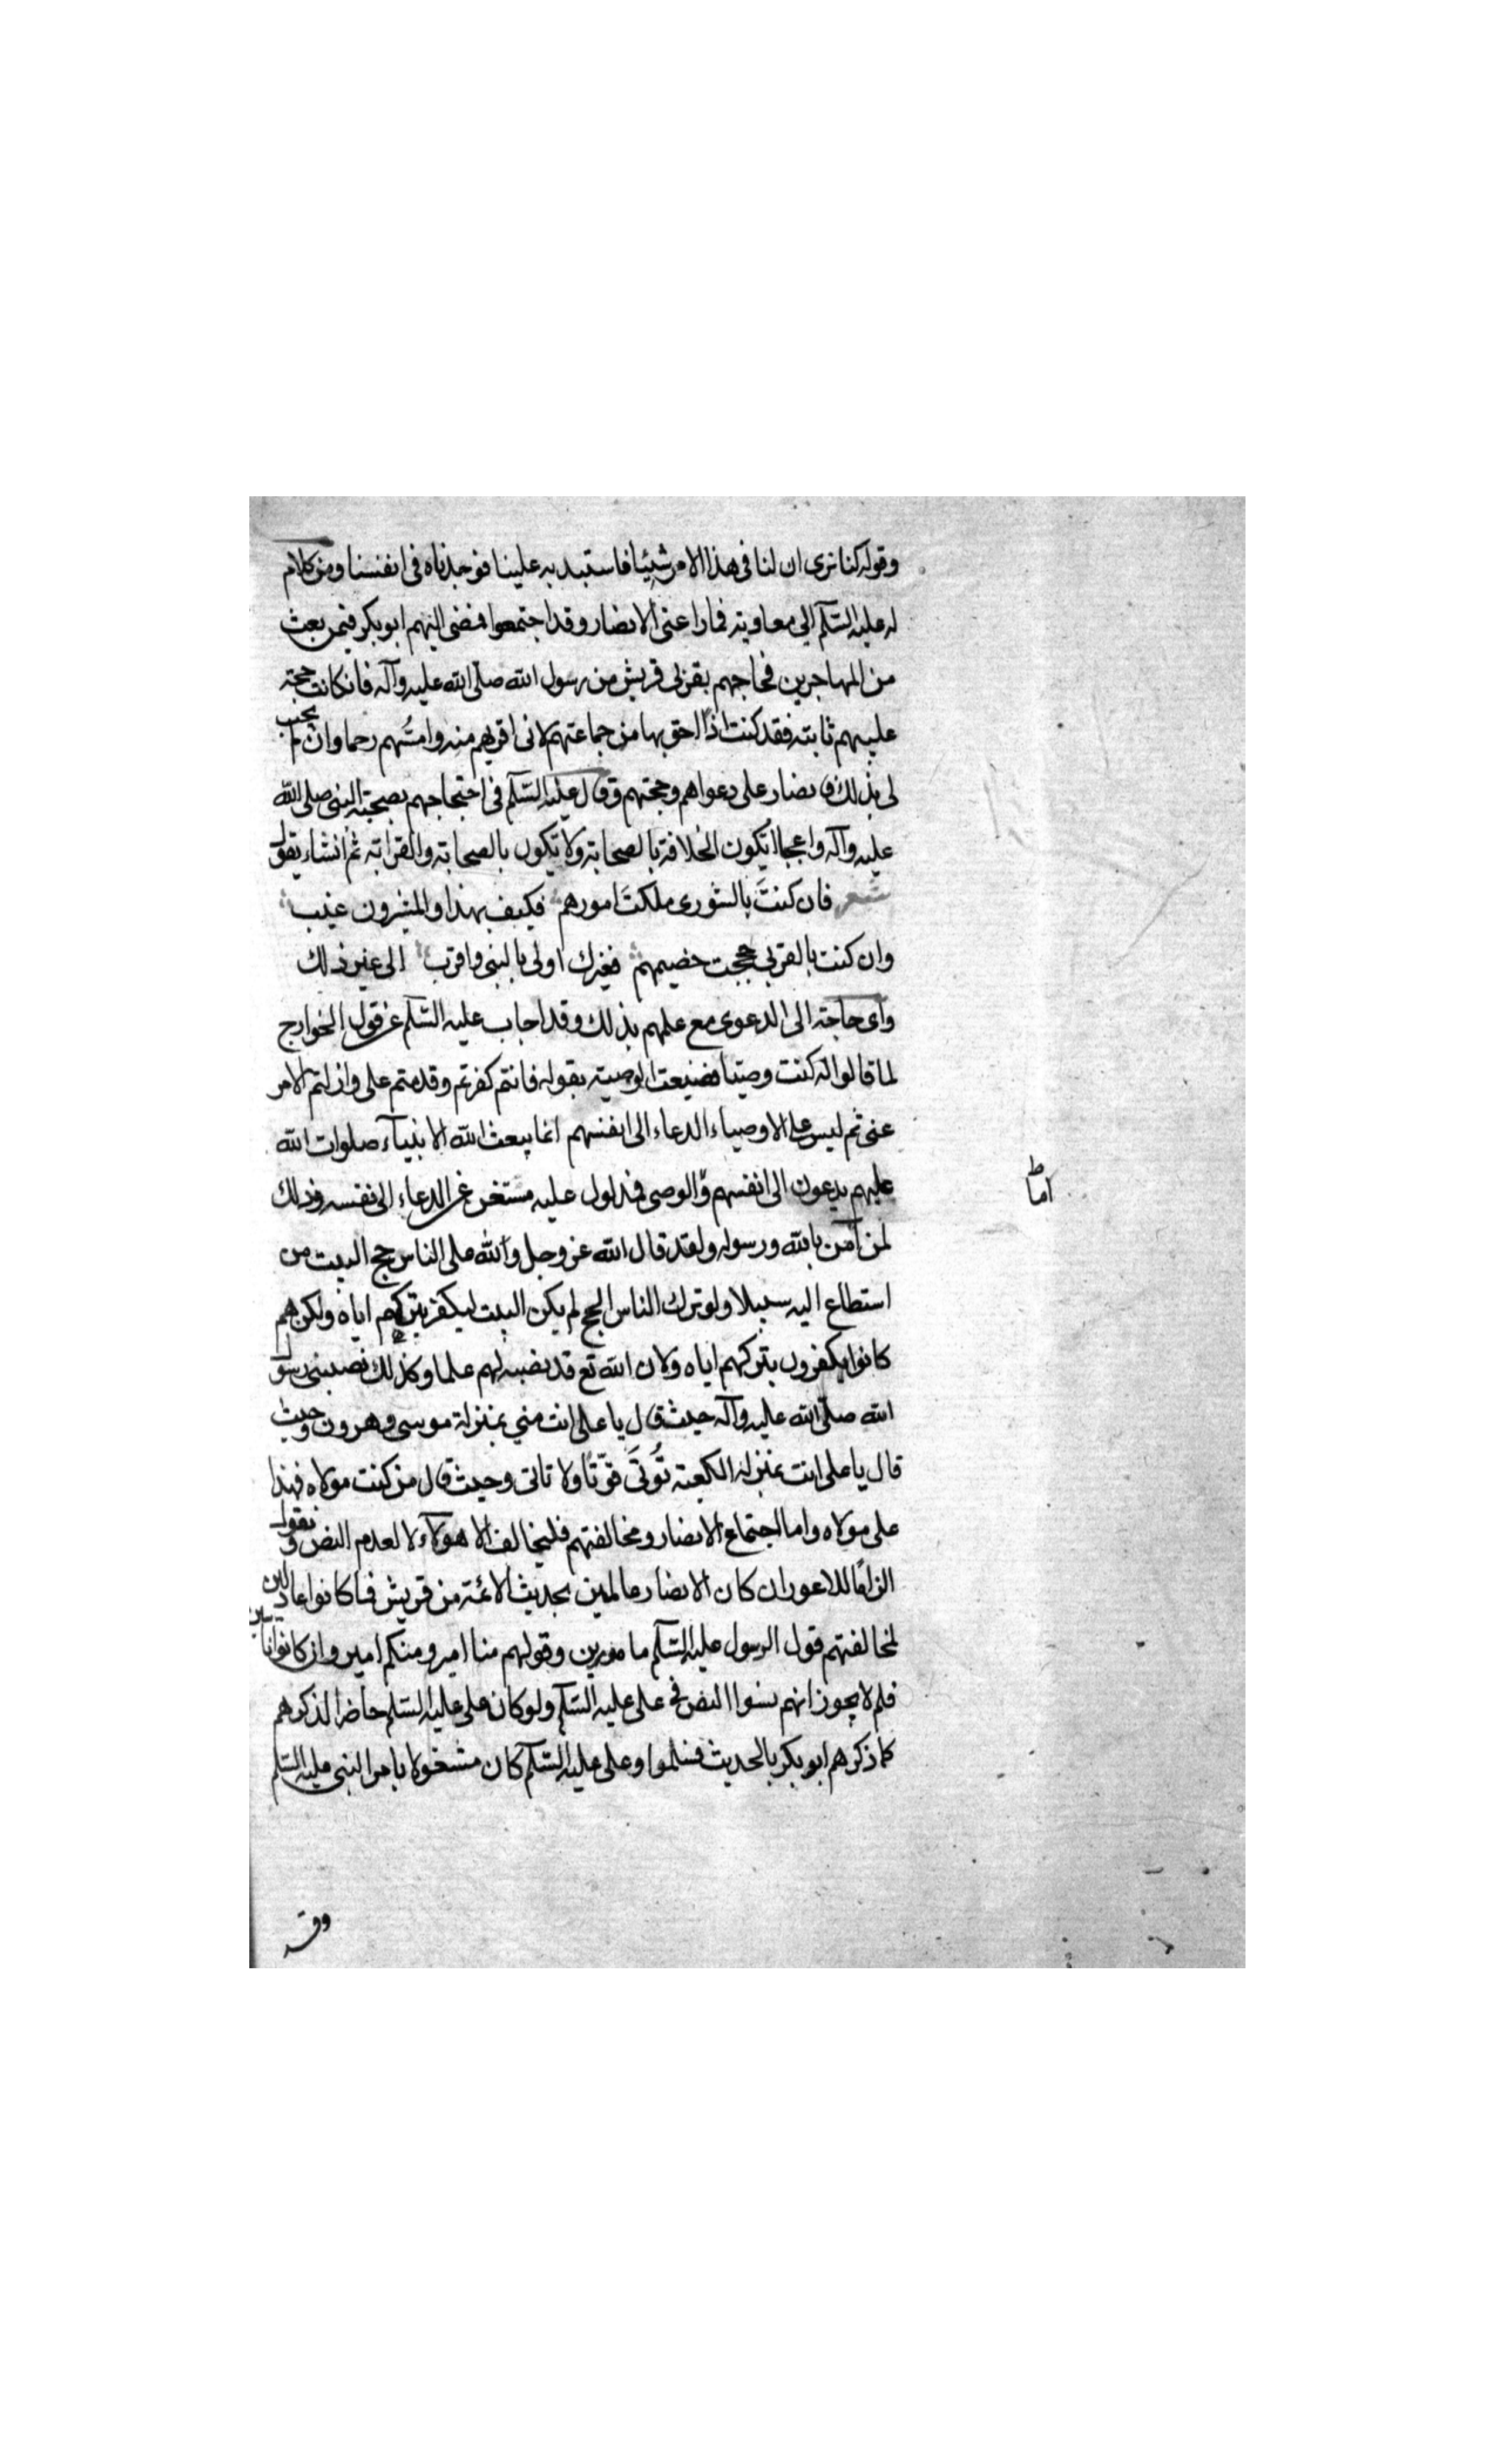 وقوله كنا نرى ان لنا فى هذا الامر شيئا فاستبد به علينا فوجدناه فى انفسنا ومن كلام
له عليه السّلم الى معاوية فما راعنى الا الانصار وقد اجتمعوا فمضى اليهم ابو بكر فيمن بعث
من المهاجرين فحاجهم بقربى قريش من رسول الله صلّى الله عليه وآله فان كانت حجته
عليهم ثابته فقد كنت اذًا احق بها من جماعتهم لانى اقربهم منه وامسّهم رحما وان لم يجب
لى بذلك فالانصار على دعواهم وحجتهم وقال عليه السّلم فى احتجاجهم بصحبة النبى صلى الله
عليه وآله واعجبا اتكون الخلافة بالصحابة ولا تكون بالصحابة والقرابة ثم انشاء يقول
شعر فان كنتَ بالشورى ملكتَ امورهم فكيف بهذا والمشيرون غيب
وان كنت بالقربى حججت خصيمهم فغيرك اولى بالنبى واقرب الى غير ذلك
واى حاجة الى الدعوى مع علمهم بذلك وقد اجاب عليه السّلم عن قول الخوارج
لما قالوا انه كنت وصيّا فضيعت الوصية بقوله فانتم كفرتم وقدمتم على وازلتم الامر
عنى ثم ليس على الاوصياء الدعاء الى انفسهم انما يبعث الله الانبيآء صلوات الله
عليهم يدعون الى انفسهم وّالوصى فمدلول عليه مستغن عن الدعاء الى نفسه وذلك
اماط
لمن آمن بالله ورسوله ولقد قال الله عز وجل ولله على الناس حج البيت من
استطاع اليه سبيلا ولو ترك الناس الحج لم يكن البيت ليكفر بتركهم اياه ولكن هم
كانوا يكفرون بتركهم اياه ولان الله تع قد نصبه لهم علما وكذلك نصبنى رسول
الله صلّى الله عليه وآله حيث قال يا على انت منى بمنزلة موسى وهرون وحيث
قال يا على انت بمنزلة الكعبة تُوتَى ولا تاتى وحيث قال من كنت مولاه فهذا
على مولاه واما اجتماع الانصار ومخالفتهم فليخالف الا هولآء لا لعدم النص ونقول
الزامًا للاعور ان كان الانصار عالمين بحديث الائمة من قريش فما كانوا عادلين
لمخالفتهم قول الرسول عليه السّلم مامورين وقولهم منا امير ومنكم امير وان كانوا ناسين
فلم لا يجوز انهم نسوا النص فى على عليه السّلم ولو كان على عليه السّلم حاضرا لذكرهم
كما ذكرهم ابو بكر بالحديث فسلموا وعلى عليه السّلم كان مشغولا بامر النبى عليه السّلم